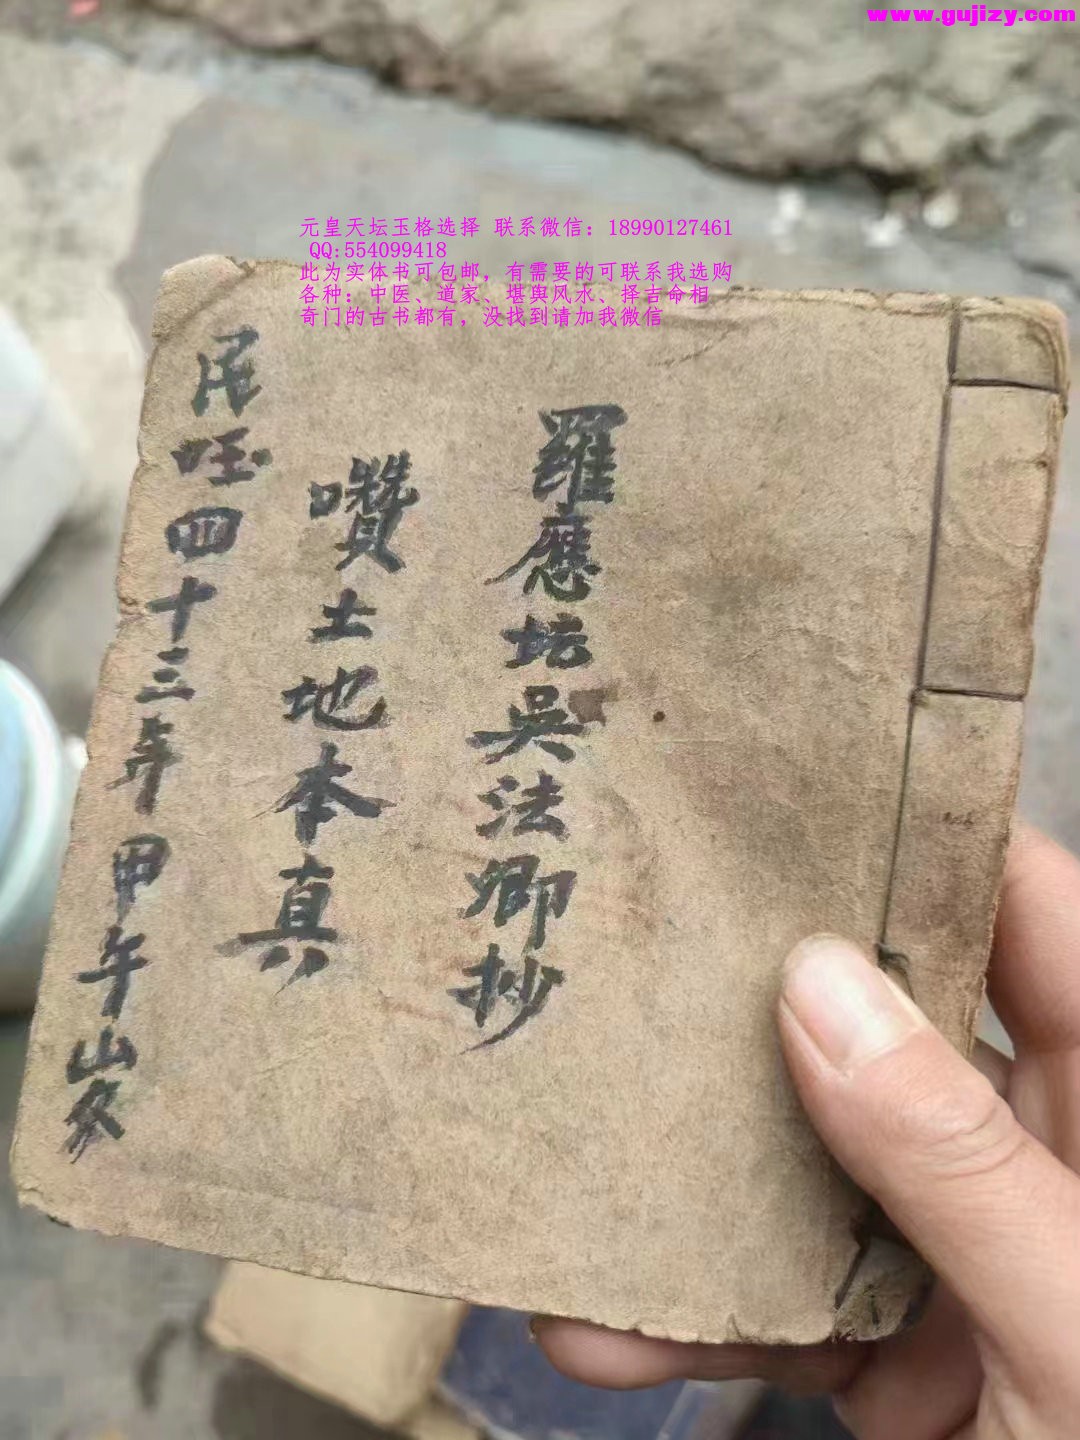 www.gujizy.com
元皇天坛玉格选择 联系微信：18990127461
QQ:554099418
此为实体书可包邮，有需要的可联系我选购
各种：中医、道家、堪舆风水、择吉命相
奇门的古书都有，没找到请加我微信
羅應坛吳法卿抄
讚土地本真
民 四十三年甲午